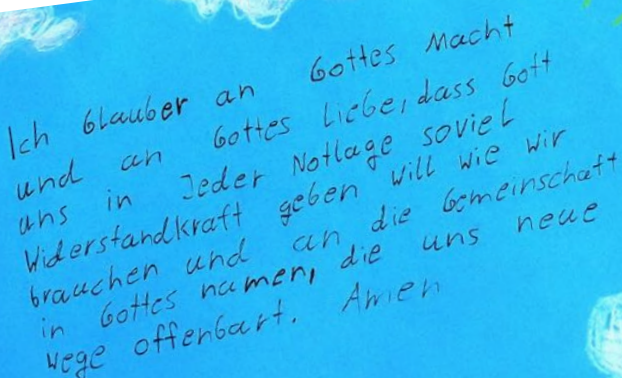 Ich Glauber an Gottes Macht
und an Gottes Liebe, dass Gott
uns in Jeder Notlage soviel
Widerstandkraft geben will wie wir
brauchen und an die Gemeinschaft
in Gottes namen, die uns neue
wege offenbart. Amen